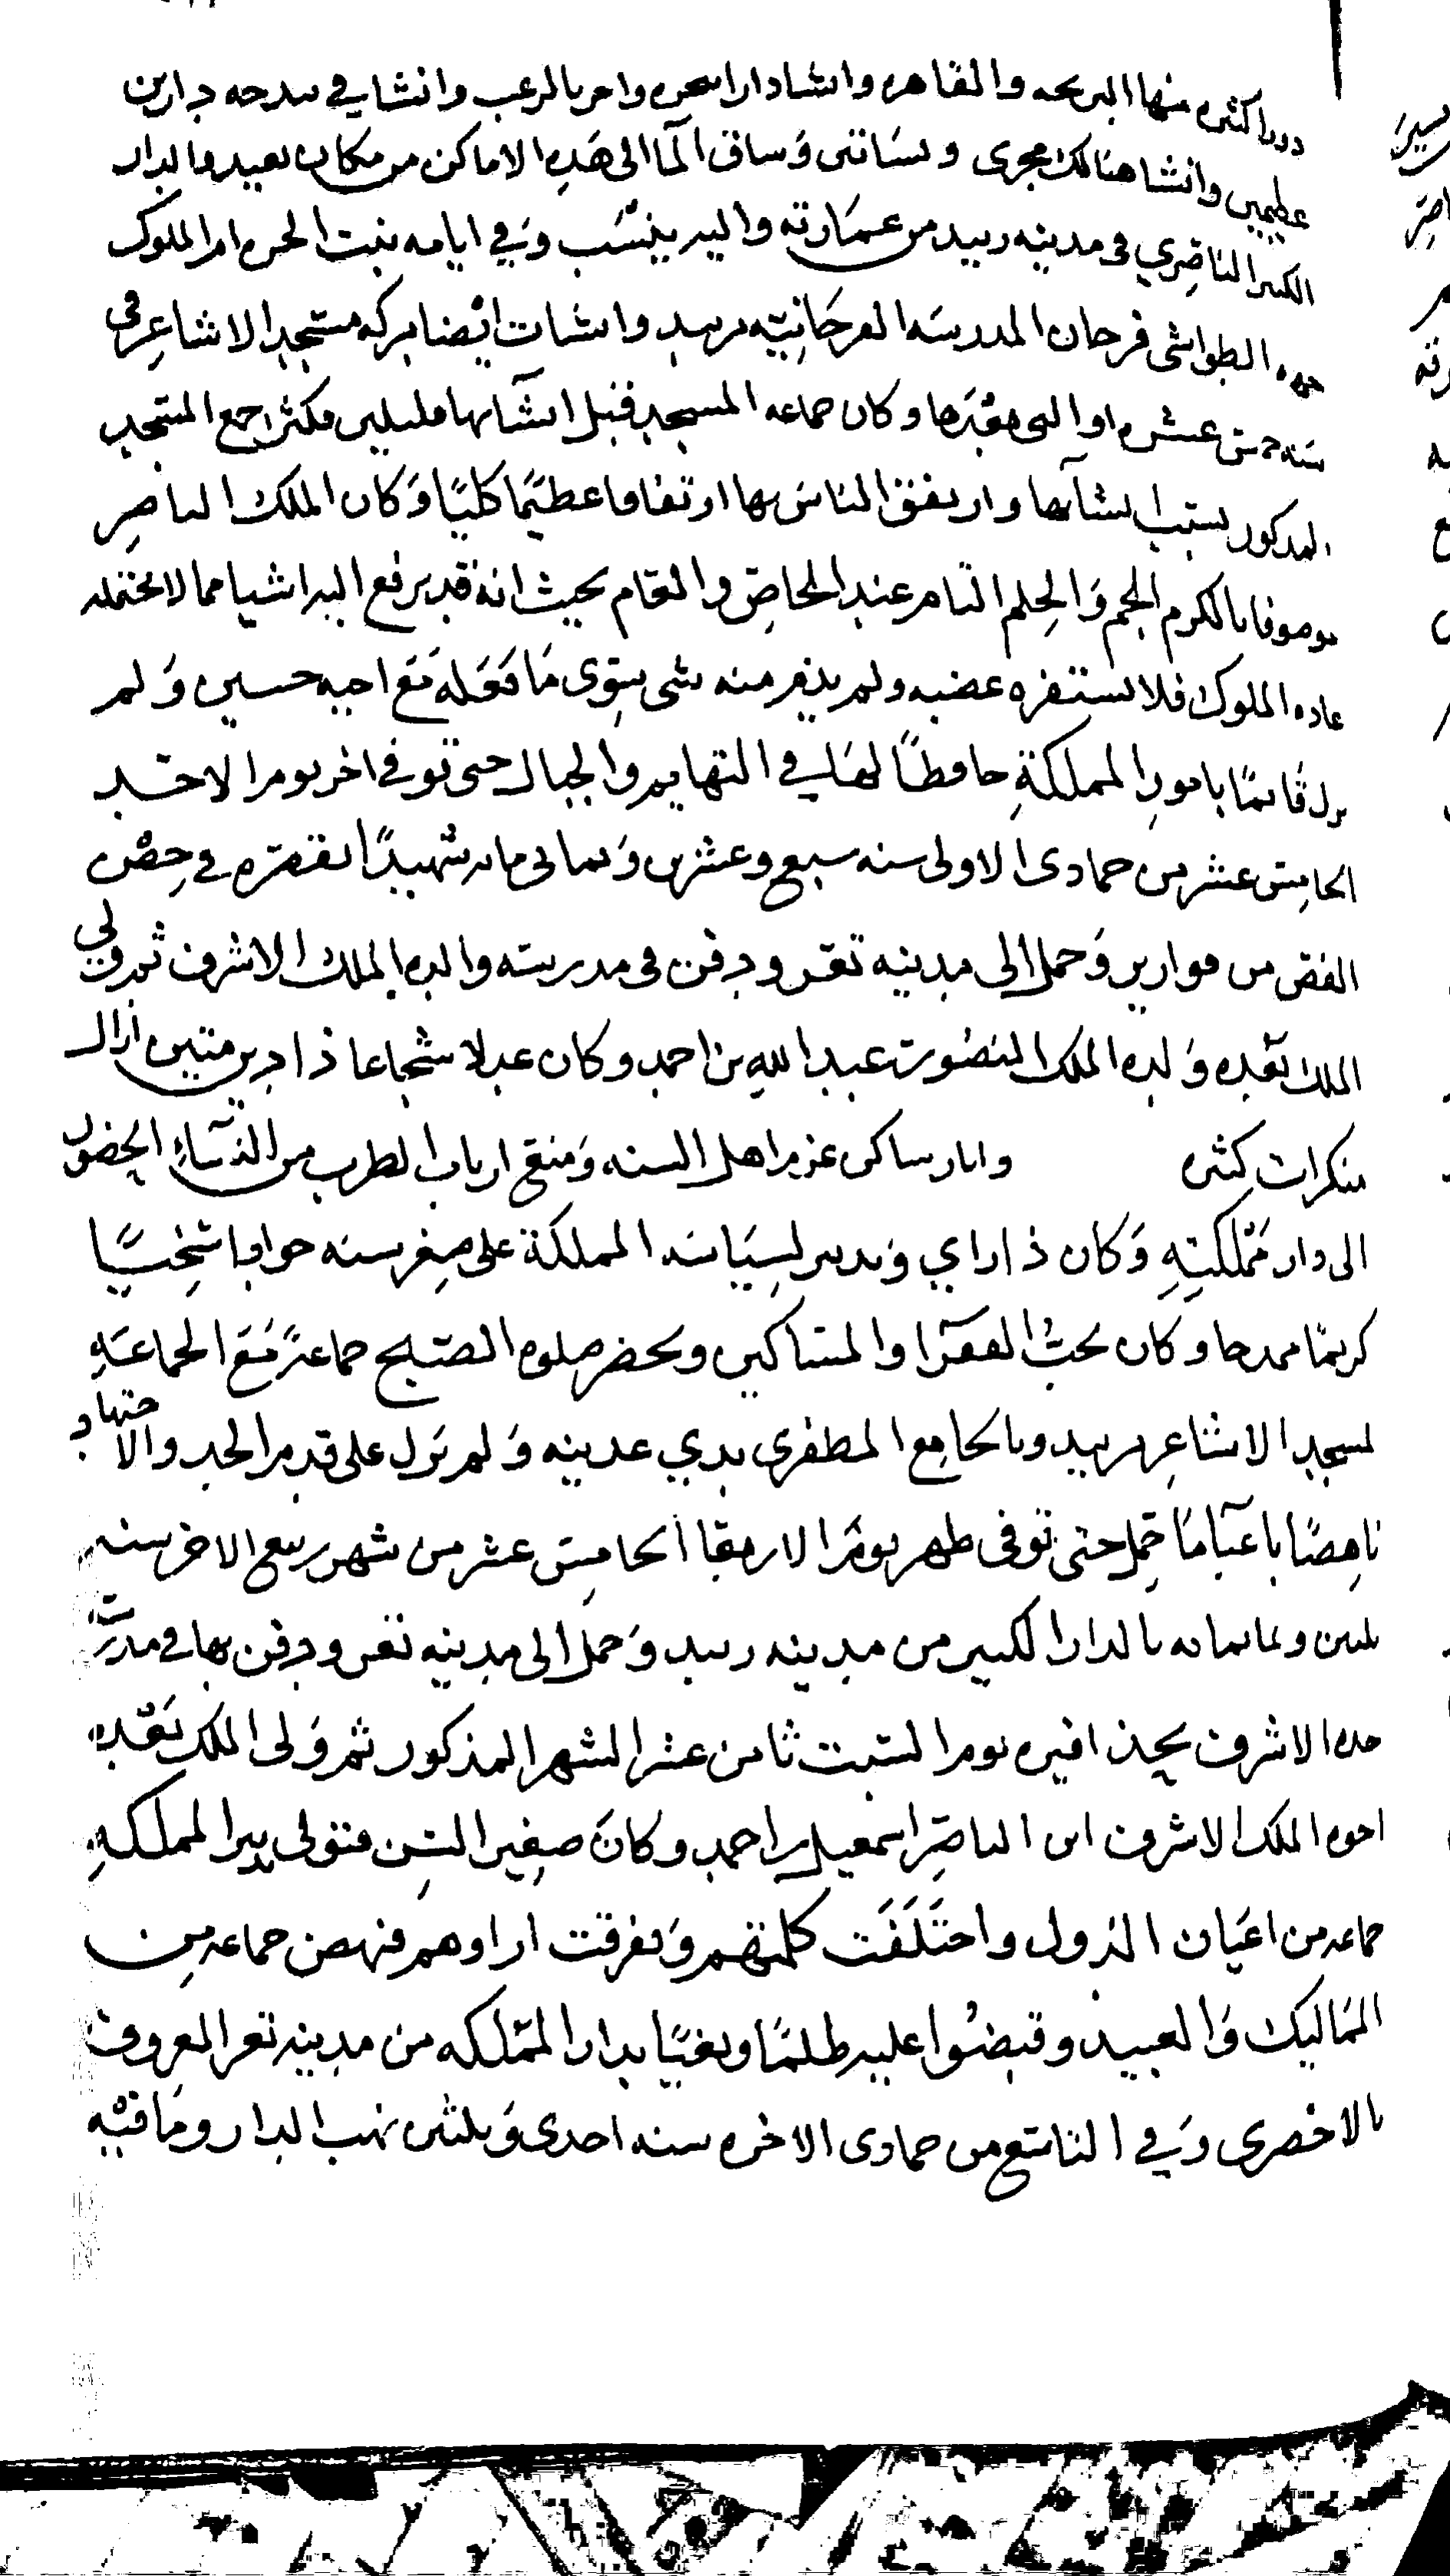 دورا كثيره منها البريحه والقاهره وانشا دارا بنحره واخر بالرعب وانشا في سدحه دارين
عظيمين وانشا هنالك مجرى وبساتين وساق الما الى هذه الاماكن من مكان بعيد والدار
الكبير الناصري في مدينه زبيد من عمارته واليه ينسب وفي ايامه بنت الحره ام الملوك
جهه الطواشي فرحان المدرسه الفرحانيه بزبيد وانشات ايضا بركه مسجد الاشاعر في
سنه خمس عشره او التي بعدها وكان جماعه المسجد قبل انشائها قليلين فكثر اجمع المسجد
المذكور بسبب انشائها وارتفق الناس بها ارتفاقا عظيما كليا وكان الملك الناصر
موصوفا بالكرم الجم والحلم التام عند الخاص والعام بحيث انه قد يرفع اليه اشيا مما لا تحتمله
عاده الملوك فلا يستفزه غضبه ولم ينفر منه شي سوى ما فعله مع اخيه حسين ولم
يزل قائما بامور المملكة حافظا لها في التهايم والجبال حتى توفي اخر يوم الاحد
الخامس عشر من جمادى الاولى سنه سبع وعشرين وثماني مائه شهيدا بقصره في حصن
الفص من قوارير وحمل الى مدينه تعز ودفن في مدرسته والده الملك الاشرف ثم ولي
الملك بعده ولده الملك المنصور عبد الله بن احمد وكان عدلا شجاعا ذا دين متين ازال
منكرات كثيره وانار ساكن عزم اهل السنه ومنع ارباب الطرب من النساء الحضور
الى دار مملكته وكان ذا راي وتدبير لسياسه المملكة على صغر سنه جوادا سخيا
كريما ممدحا وكان يحب الفقرا والمساكين ويحضر صلوه الصبح جماعة مع الجماعه
لمسجد الاشاعر بزبيد وبالجامع المظفري بذي عدينه ولم يزل على قدم الجد والاجتهاد
ناهضا باعبا ما حمل حتى توفي ظهر يوم الاربعا الخامس عشر من شهر ربيع الاخر سنه
ثلثين وثمانمائه بالدار الكبير من مدينه زبيد وحمل الى مدينه تعز ودفن بها في مدرسة
جده الاشرف بحذافيره يوم السبت ثامن عشر الشهر المذكور ثم ولي الملك بعده
اخوه الملك الاشرف ابن الناصر اسمعيل بن احمد وكان صغير السن فتولى تدبير المملكه
جماعه من اعيان الدول واختلفت كلمتهم وتفرقت اراوهم فنهض جماعه من
المماليك والعبيد وقبضوا عليه ظلما وبغيا بدار المملكه من مدينه تعز المعروف
بالاخضرى وفي التاسع من جمادى الاخره سنه احدى وثلثين نهب الدار وما فيه